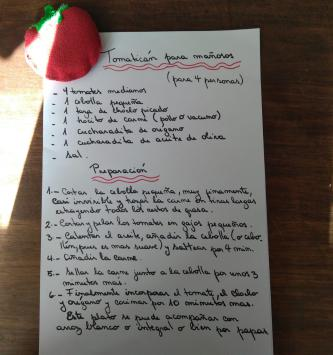 Tomaticán para mañosos
(para 4 personas)
- 4 tomates medianos
- 1 cebolla pequeña
- 1 taza de choclo picado
- 1 trocito de carne (pollo o vacuno)
- 1 cucharadita de orégano
- 1 cucharadita de aceite de oliva
- Sal.
Preparación
1.- Cortar la cebolla pequeña, muy finamente,
casi invisible y la carne en tiras largas
extrayendo todos los restos de grasa.
2.- Cortar y pelar los tomates en gajos pequeños.
3.- Calentar el aceite, añadir la cebolla (o cebo
llín, pues es mas suave) y saltear por 4 min.
4.- Añadir la carne.
5.- Sellar la carne junto a la cebolla por unos 3
minutos mas.
6.- Finalmente incorporar el tomate, el choclo
y orégano y cocinar por 10 minutos mas.
Este plato se puede acompañar con
arroz blanco o integral o bien por papas